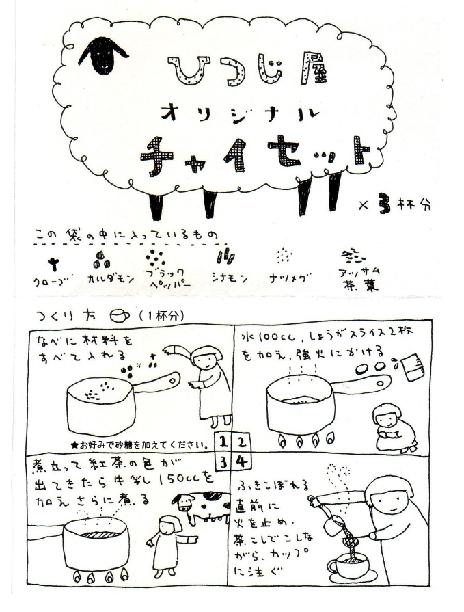 ひつじ屋
オリジナル
チャイセット
×3杯分
この袋の中に入っているもの
クローブ
カルダモン
ブラック
ペッパー
シナモン
ナツメグ
アッサム
茶葉
つくり方 (1杯分)
なべに材料を
すべて入れる
★お好みで砂糖を加えてください。
1
水100cc、しょうがスライス2枚
を加え、強火にかける
2
煮立って紅茶の色が
出てきたら牛乳150ccを
加えさらに煮る
3
4
ふきこぼれる
直前に
火を止め、
茶こしでこしな
がら、カップ
に注ぐ